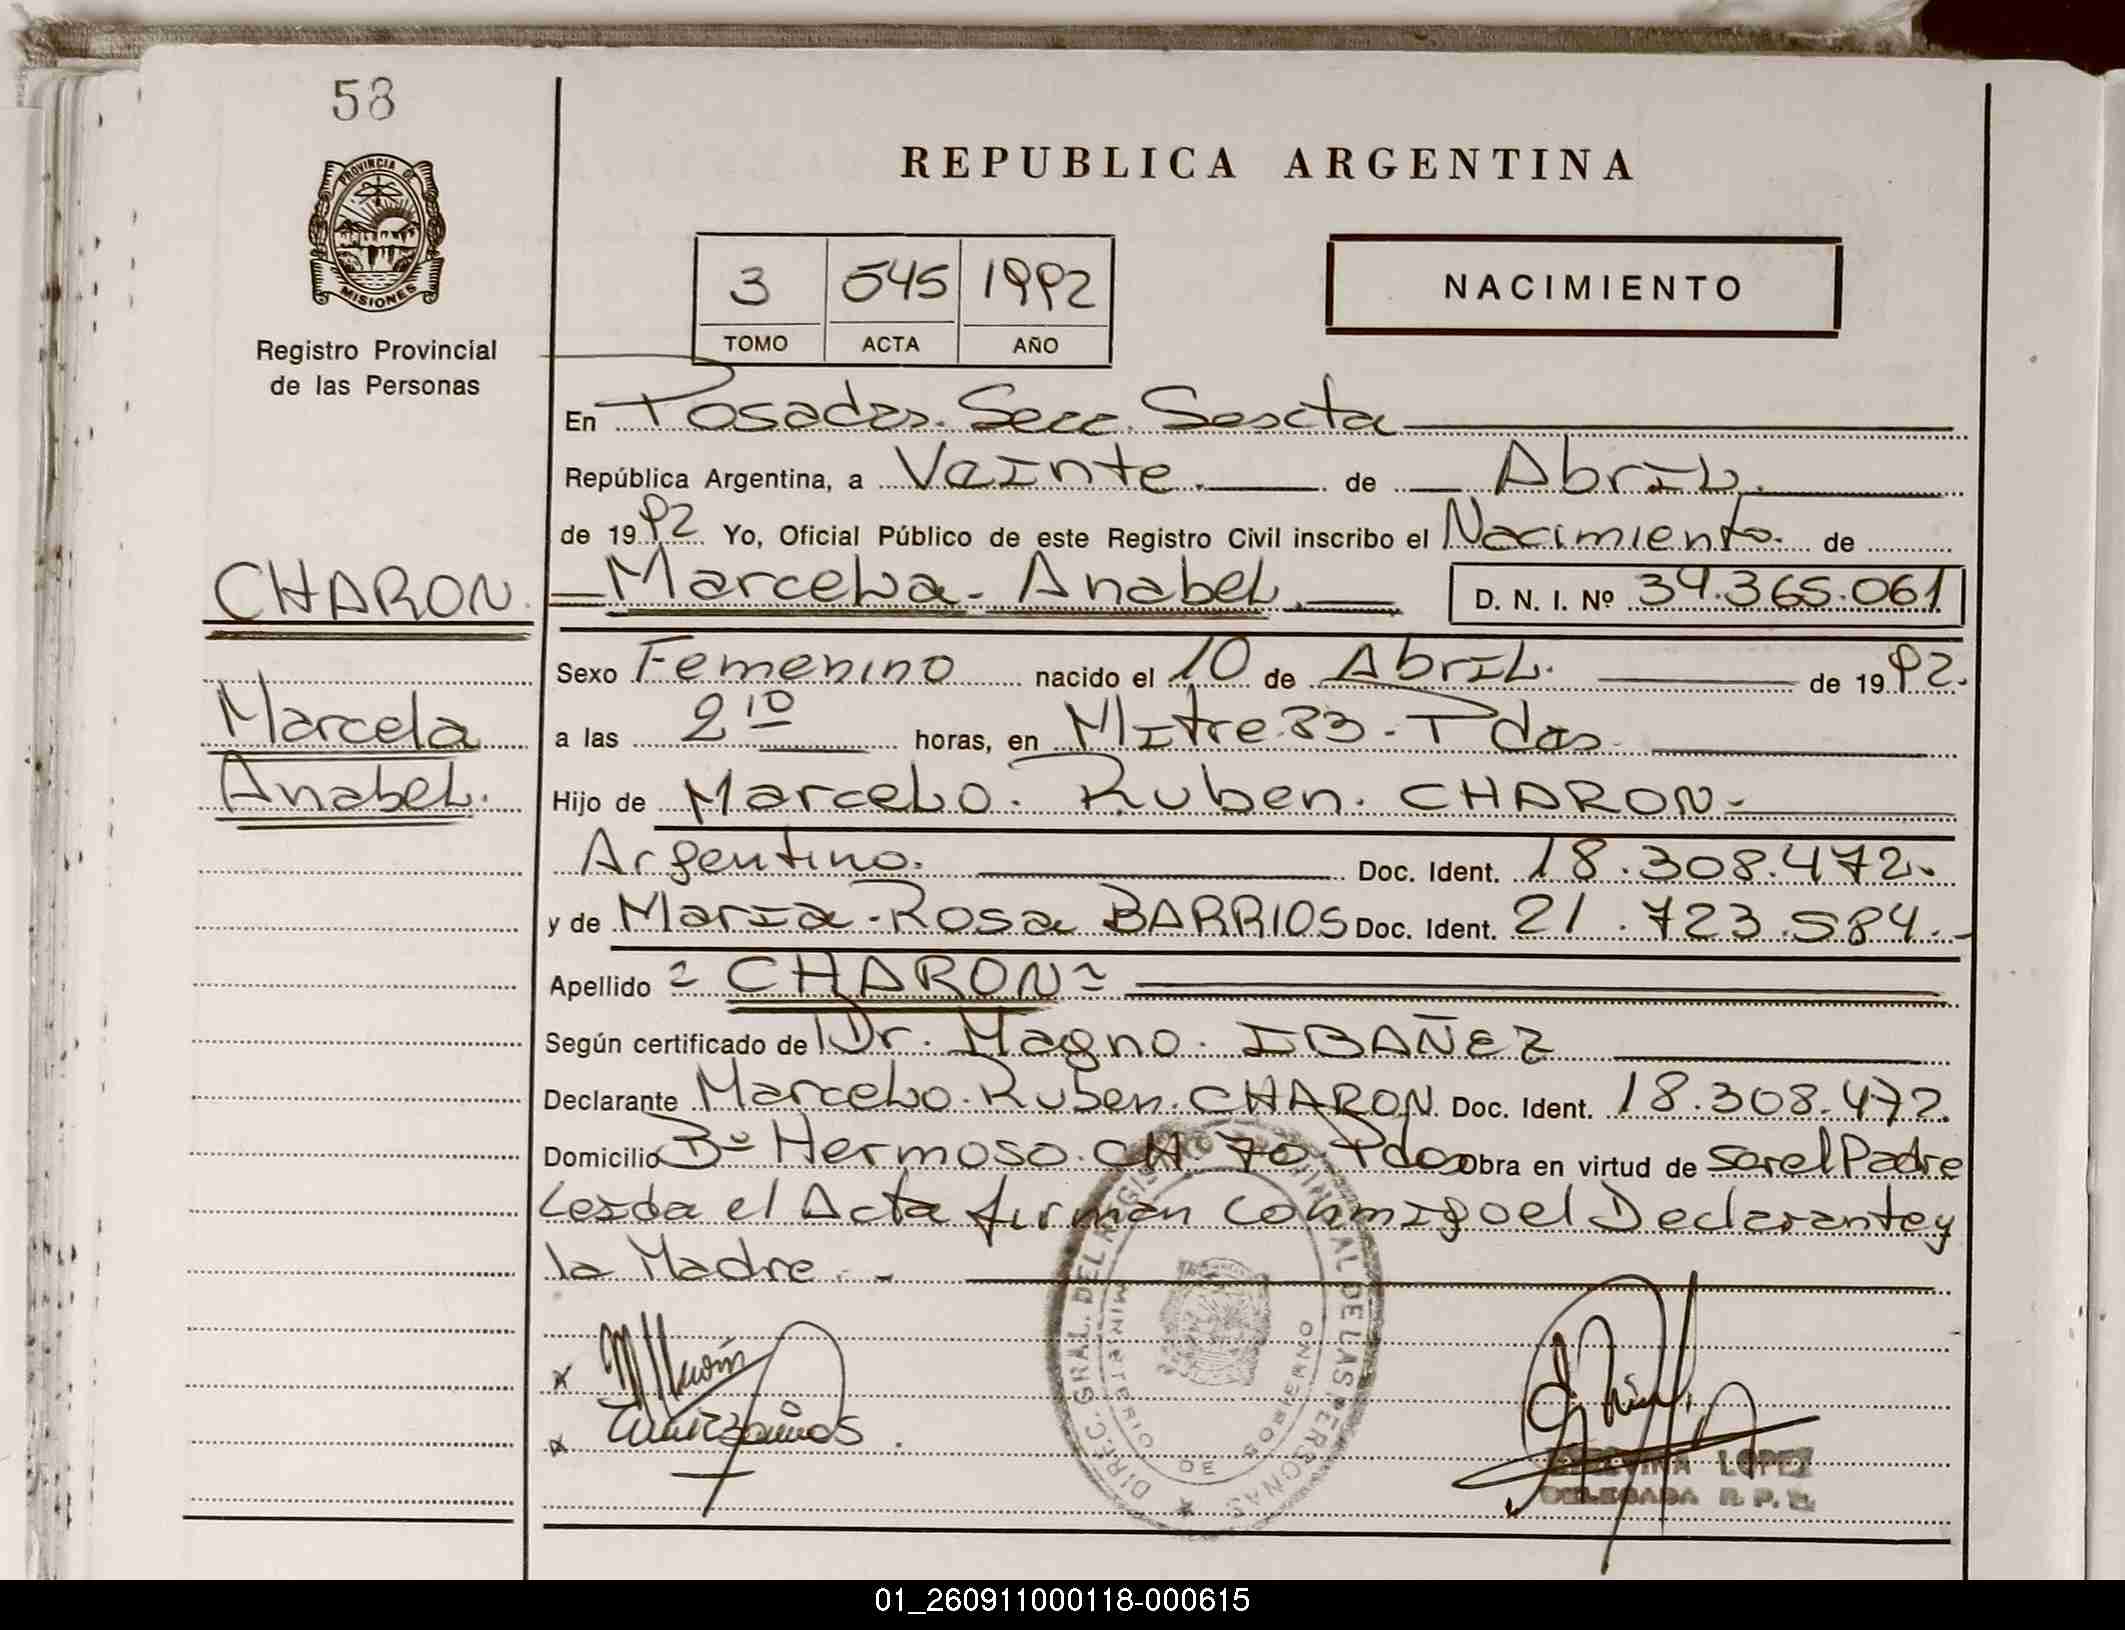 58
PROVINCIA DE
MISIONES
Registro Provincial
de las Personas
REPUBLICA ARGENTINA
3 545 1992
TOMO ACTA AÑO
NACIMIENTO
En Posadas. Secc. Sexta
República Argentina, a Veinte. de Abril.
de 1992 Yo, Oficial Público de este Registro Civil inscribo el Nacimiento. de
CHARON.
Marcela
Anabel.
Marcela. Anabel. D. N. I. Nº 39.365.061
Sexo Femenino nacido el 10 de Abril. de 1992.
a las 2 10 horas, en Mitre 83. Pdas.
Hijo de Marcelo. Ruben. CHARON.
Argentino. Doc. Ident. 18.308.472.
y de Maria. Rosa BARRIOS Doc. Ident. 21.723.584.
Apellido = CHARON =
Según certificado de Dr. Magno. IBAÑEZ
Declarante Marcelo. Ruben. CHARON. Doc. Ident. 18.308.472.
Domicilio Bº Hermoso. CH 70. Pdas Obra en virtud de ser el Padre
Leida el Acta firman conmigo el Declarante y
la Madre.
DIREC. GRAL. DEL REGISTRO PROVINCIAL DE LAS PERSONAS
MINISTERIO DE GOBIERNO
LOPEZ
DELEGADA R. P. P.
01_260911000118-000615